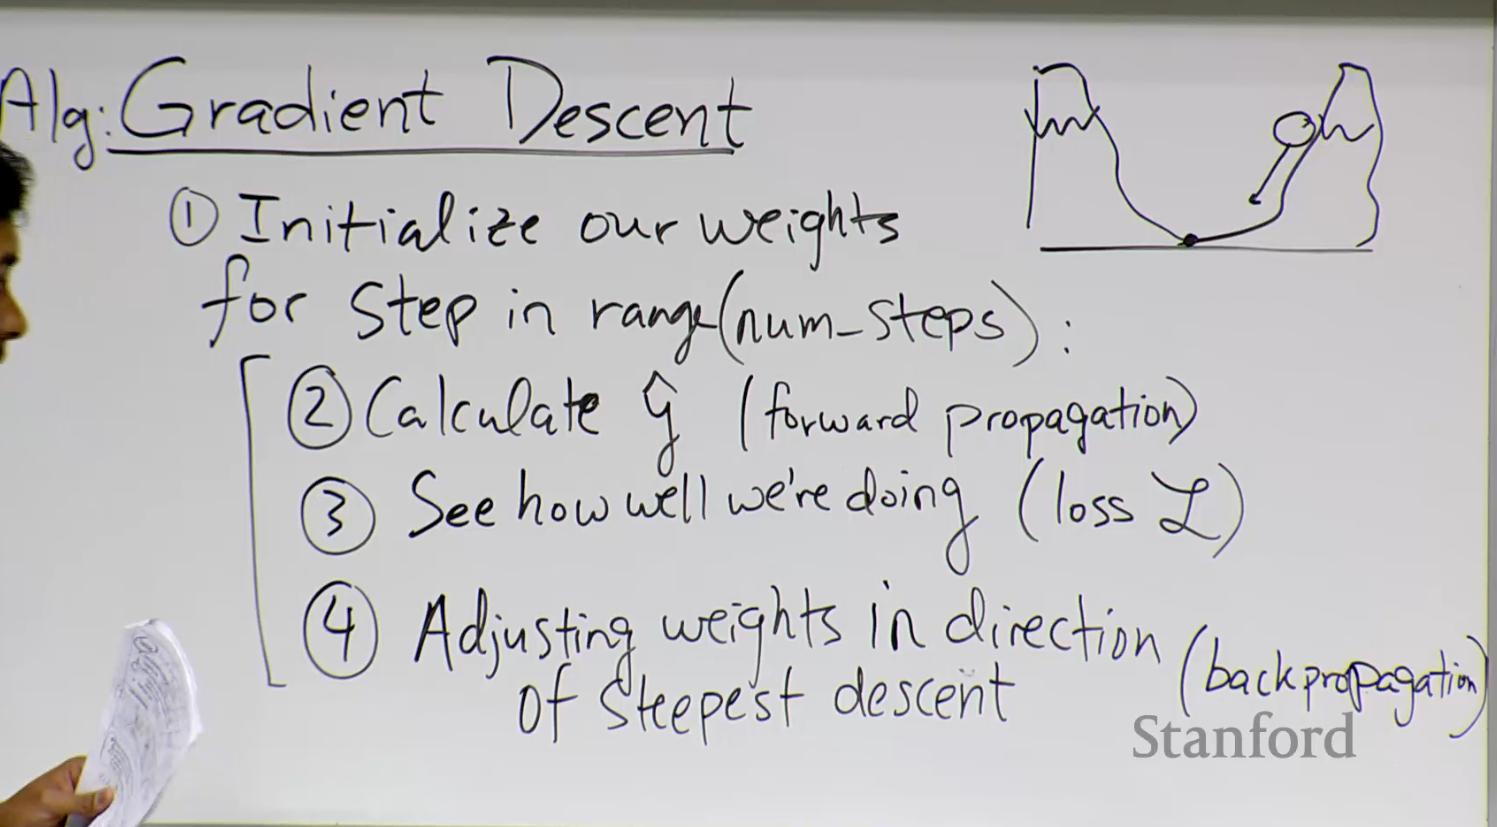 Alg: Gradient Descent
① Initialize our weights
for step in range(num_steps):
② Calculate ŷ (forward propagation)
③ See how well we're doing (loss ℒ)
④ Adjusting weights in direction
of steepest descent (backpropagation)
Stanford